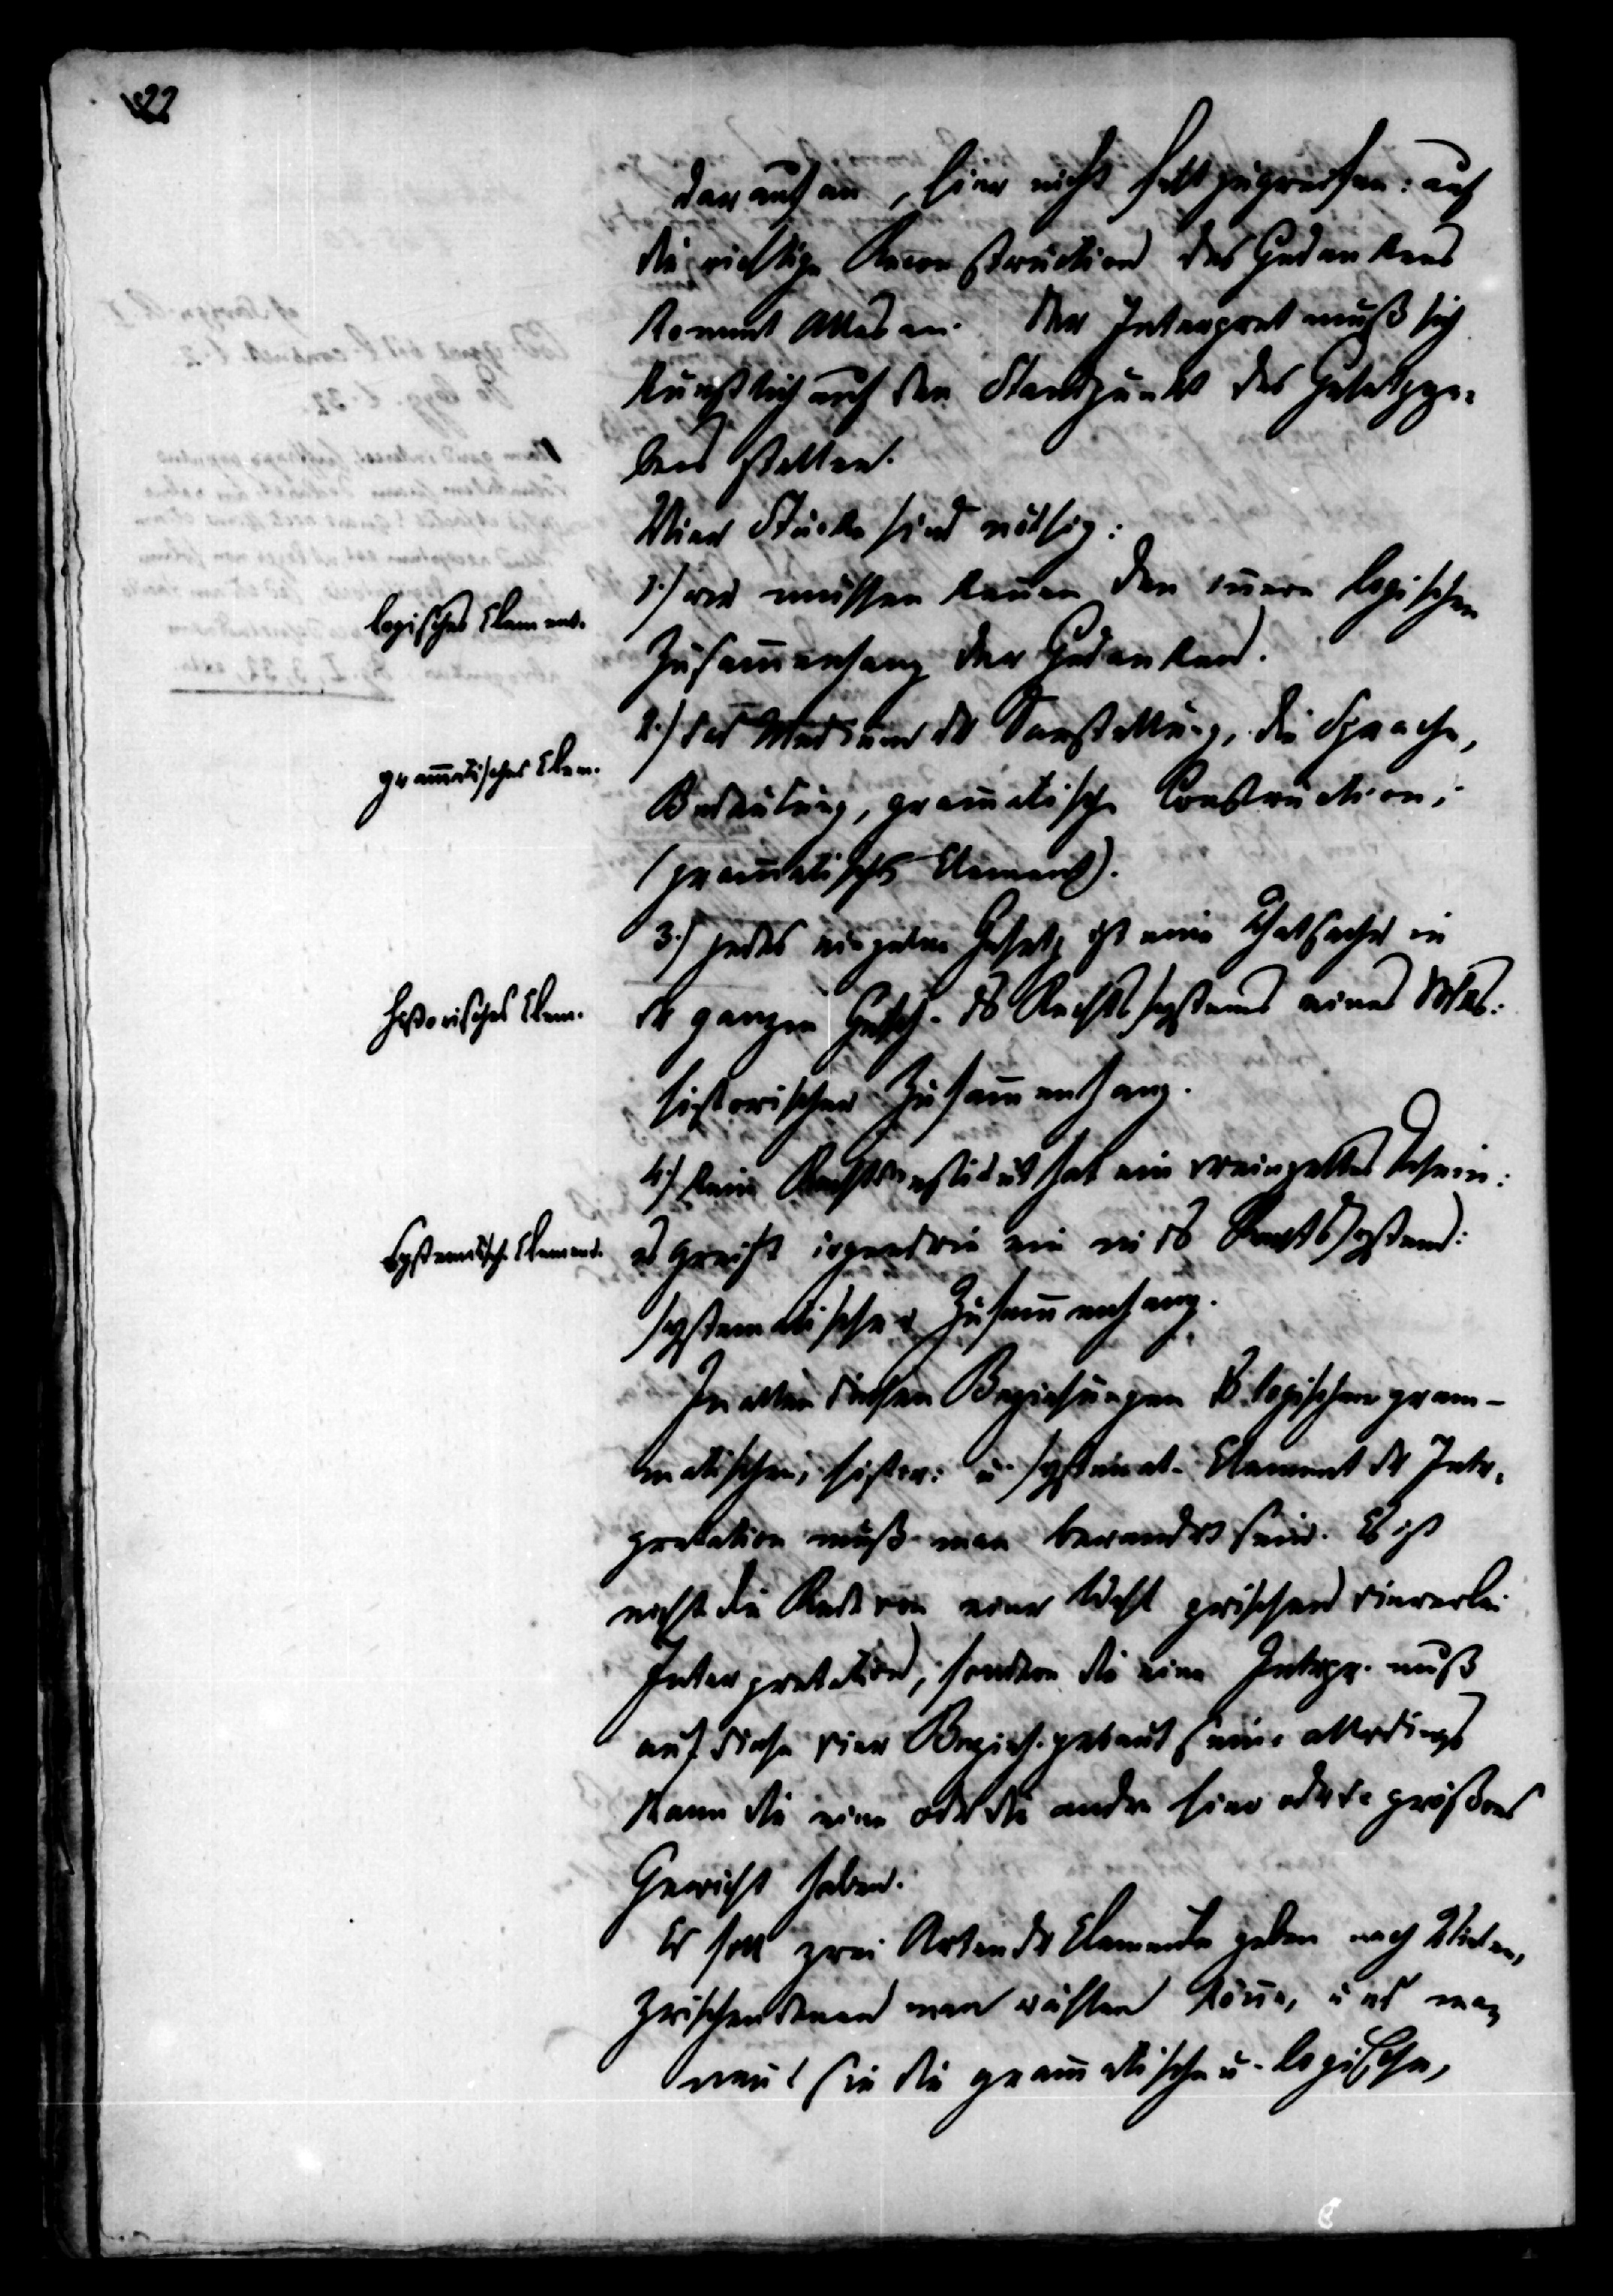 22
darauf an, hier nicht fehlzugreifen: auf
die richtige Reconstruction des Gedankens
kommt Alles an. Der Interpret muß sich
künstlich auf den Standpunkt des Gesetzge-
bers stellen.
Vier Stücke sind nöthig:
logisches Element.
1.) wir müssen kennen den innern logischen
Zusam̅enhang der Gedanken.
2.) das Medium der Darstellung, die Sprache,
gram̅atisches Elem.
Bedeutung, gram̅atische Construction,
(gram̅atisches Element).
3.) jedes einzelne Gesetz ist eine Thatsache in
historisches Elem.
der ganzen Gesch. des Rechtssystems eines Volkes:
historischer Zusam̅enhang.
4.) kein Rechtsinstitut hat ein vereinzeltes Dasein:
systematisch. Element.
es greift irgendwie ein in das Rechtssystem:
systematischer Zusam̅enhang.
In allen diesen Beziehungen des logischen gram-
matischen, histor. u. systemat. Element der Inter-
pretation muß man bewandert sein. Es ist
nicht die Rede von einer Wahl zwischen viererlei
Interpretation, sondern die eine Interpr. muß
auf diese vier Bezieh. gebaut sein, allerdings
kann die eine oder die andre hier oder da größeres
Gewicht haben.
Es soll zwei Arten der Elemente geben nach Vielen,
zwischen denen man wählen kön̅e, und man
nen̅t sie die gram̅atische u. logische,